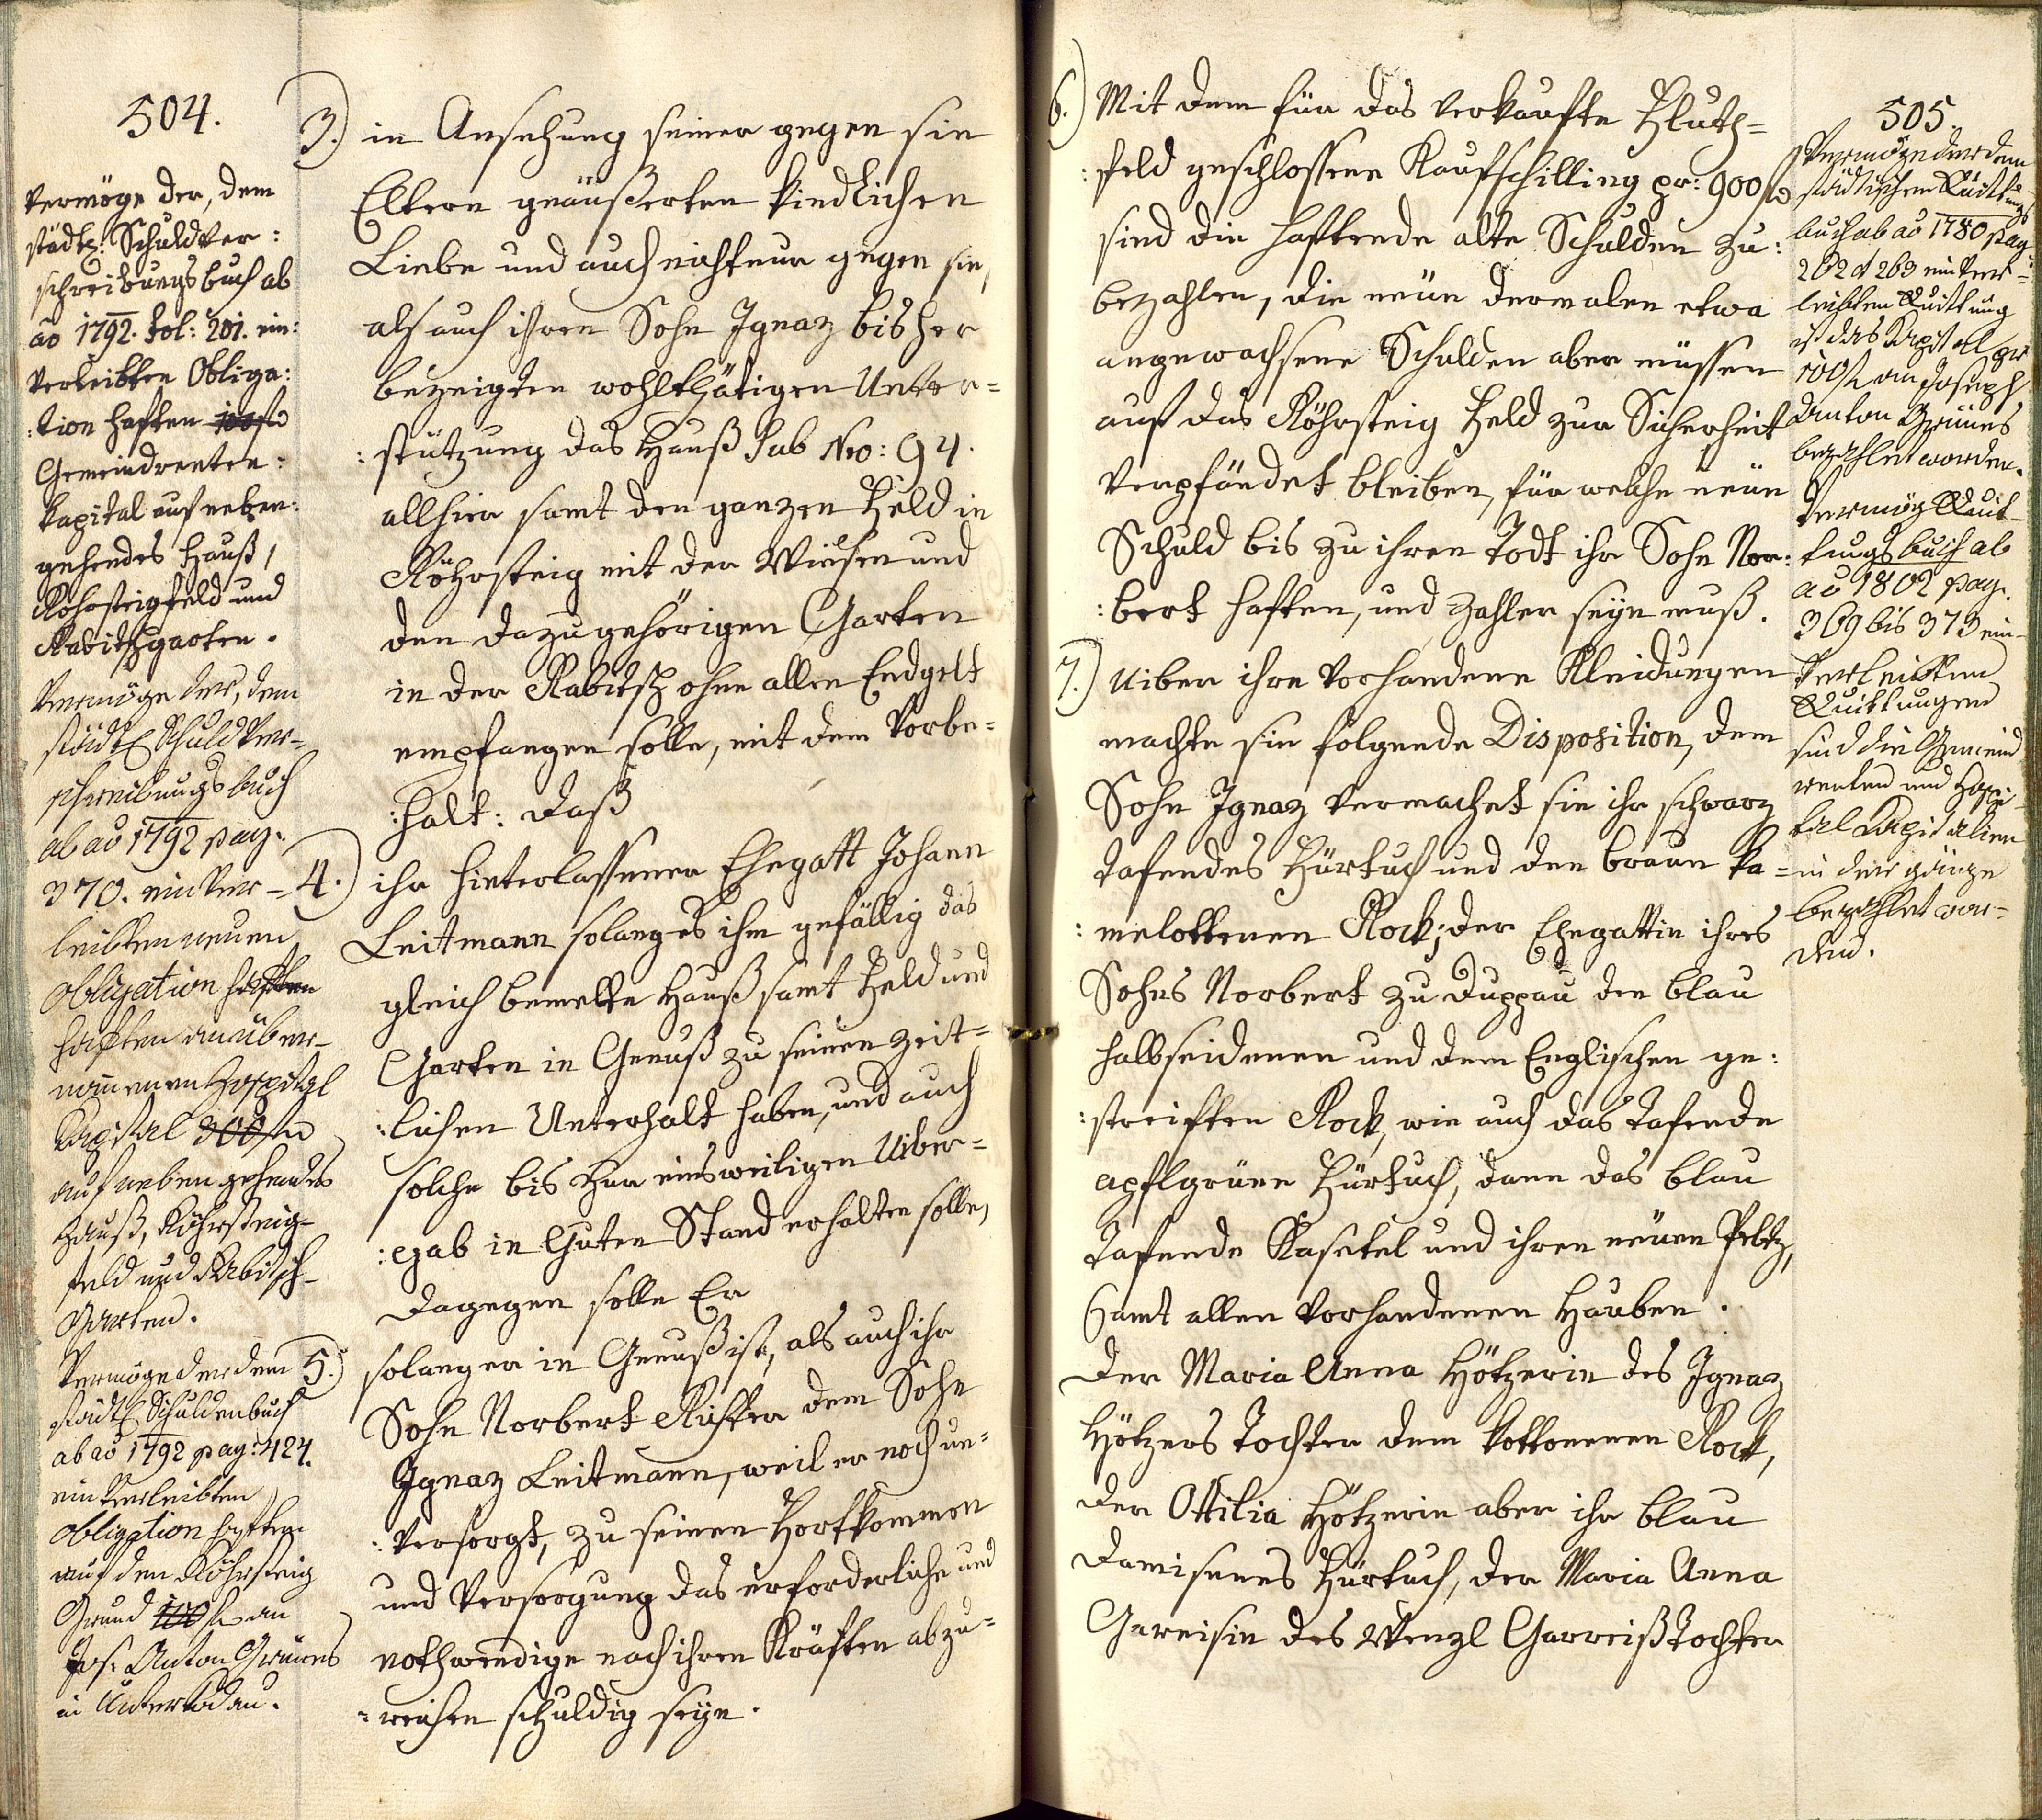 504.
Vermöge der, dem
städt: Schuldver:
schreibungs buch ab
ao 1792. fol: 201. ein:
verleibten Obliga:
:tion haften 100 f
Gemeindrenten:
Kapital auf neben:
gehendes Hauß,
Röhrsteigfeld und
Rabitschgarten.
Vermöge der, dem
städt Schuldver-
schreibungs buch
ab ao 1792 pag.
370. einver-
leibten neuen
Obligation haften
haften an über-
nommenen Hospital
Kapital 300 f
auf neben gehendes
Hauß, Röhrsteig-
feld und Rabitsch-
Garten.
Vermöge der dem
städt Schuldenbuch
ab ao 1792 pag: 424.
einverleibten
Obligation haften
auf den Röhrsteig
Grund 100 f an
Jos: Anton Grünes
in
3.) in Ansehung seiner gegen sie
Eltern geäußerten kindlichen
Liebe und auch nicht nur gegen sie,
als auch ihren Sohn Ignaz bisher
bezeigten wohlthätigen Unter=
:stützung das Hauß sub Nro: 94.
allhier samt den ganzen Feld in
Röhrsteig mit der Wiesen und
den dazugehörigen Garten
in der Rabitsch ohne allen Endgelt
empfangen solle, mit dem Vorbe=
:halt: daß
4.) ihr hinterlassener Ehegatt Johann
Leitmann solang es ihm gefällig das
gleich bemelte Hauß samt Feld und
Garten in Genuß zu seinen zeit=
:lichen Unterhalt haben, und auch
solche bis zur einsweiligen Uiber=
:gab in Guten Stand erhalten solle,
dagegen solle Er
5.) solang er in Genuß ist, als auch ihr
Sohn Norbert Richter dem Sohn
Ignaz Leitmann, weil er noch un=
:versorgt, zu seinen Fortkommen
und Versorgung das erforderliche und
nothwendige nach ihren Kräften abzu=
=reichen schuldig seyn.
505.
6.) Mit dem für das verkaufte Fluth=
:feld geschlossene Kaufschilling pr: 900 f
sind die haftende alte Schulden zu:
bezahlen, die neüe dermalen etwa
angewachsene Schulden aber müssen
auf das Röhrsteig Feld zur Sicherheit
verpfändet bleiben, für welche neüe
Schuld bis zu ihren Todt ihr Sohn Nor:
:bert haften, und Zahler seyn muß.
7.) Uiber ihre vorhandene Kleidungen
machte sie folgende Disposition, dem
Sohn Ignaz vermachet sie ihr schwarz
tafendes Fürtuch und den braun ka=
:melottenen Rock; der Ehegattin ihres
Sohns Norbert zu Duppau den blau
halbseidenen und dem Englischen ge:
:streiften Rock, wie auch das tafende
apflgrüne Fürtuch, dann das blau
tafende Kasetel und ihren neüen Peltz,
samt allen vorhandenen Hauben.
Der Maria Anna Hötzerin des Ignaz
Hötzers Tochter dem kottonenen Rock,
der Ottilia Hötzerin aber ihr blau
damisenes Fürtuch, der Maria Anna
Gareisin des Wenzl Garreiß Tochter
Vermöge der dem
städtischen Quittungs
buch ab ao 1780 pag:
262 et 263 einver=
leibten Quittung
ist das Kapital pr
100 f an Joseph
Anton Grünes
bezahlet worden.
Vermög Quit-
tungsbuch ab
ao 1802 pag.
369 bis 373 ein-
verleibten
Quittungen
sind die Gemeind
renten und Hospi-
tal Kapitalien
in der gänze
bezahlet wor-
den.